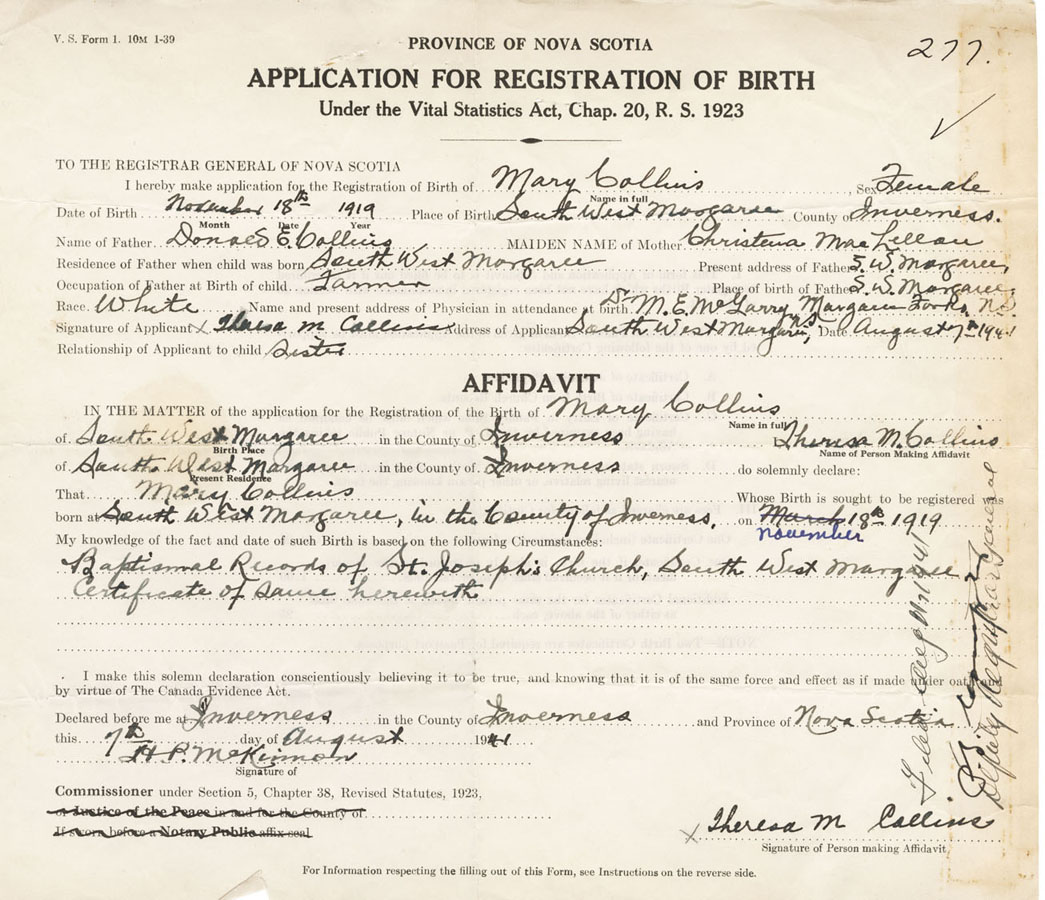 V. S. Form 1. 10M 1-39
PROVINCE OF NOVA SCOTIA
277.
APPLICATION FOR REGISTRATION OF BIRTH
Under the Vital Statistics Act, Chap. 20, R. S. 1923
TO THE REGISTRAR GENERAL OF NOVA SCOTIA
I hereby make application for the Registration of Birth of Mary Collins, Sex Female
Name in full
Date of Birth November 18th 1919 Place of Birth South West Margaree County of Inverness.
Month Date Year
Name of Father Donald E. Collins MAIDEN NAME of Mother Christena MacLellan
Residence of Father when child was born South West Margaree Present address of Father S. W. Margaree,
Occupation of Father at Birth of child Farmer Place of birth of Father S. W. Margaree,
Race. White Name and present address of Physician in attendance at birth Dr. M. E. McGarry, Margaree Forks, N.S.
Signature of Applicant x Theresa M Collins Address of Applicant South West Margaree, N.S. Date August 7th 1941
Relationship of Applicant to child Sister
AFFIDAVIT
IN THE MATTER of the application for the Registration of the Birth of Mary Collins
Name in full
of South West Margaree in the County of Inverness Theresa M. Collins
Birth Place Name of Person Making Affidavit
of South West Margaree in the County of Inverness do solemnly declare:
Present Residence
That Mary Collins Whose Birth is sought to be registered was
born at South West Margaree, in the County of Inverness, on March 18th 1919
November
My knowledge of the fact and date of such Birth is based on the following Circumstances:
Baptismal Records of St. Joseph's Church, South West Margaree
Certificate of same herewith
I make this solemn declaration conscientiously believing it to be true, and knowing that it is of the same force and effect as if made under oath and
by virtue of The Canada Evidence Act.
Declared before me at Inverness in the County of Inverness and Province of Nova Scotia
this 7th day of August 1941
H. P. McKinnon
Signature of
Commissioner under Section 5, Chapter 38, Revised Statutes, 1923,
or Justice of the Peace in and for the County of
If sworn before a Notary Public affix seal
x Theresa M Collins
Signature of Person making Affidavit
For Information respecting the filling out of this Form, see Instructions on the reverse side.
Deputy Registrar General